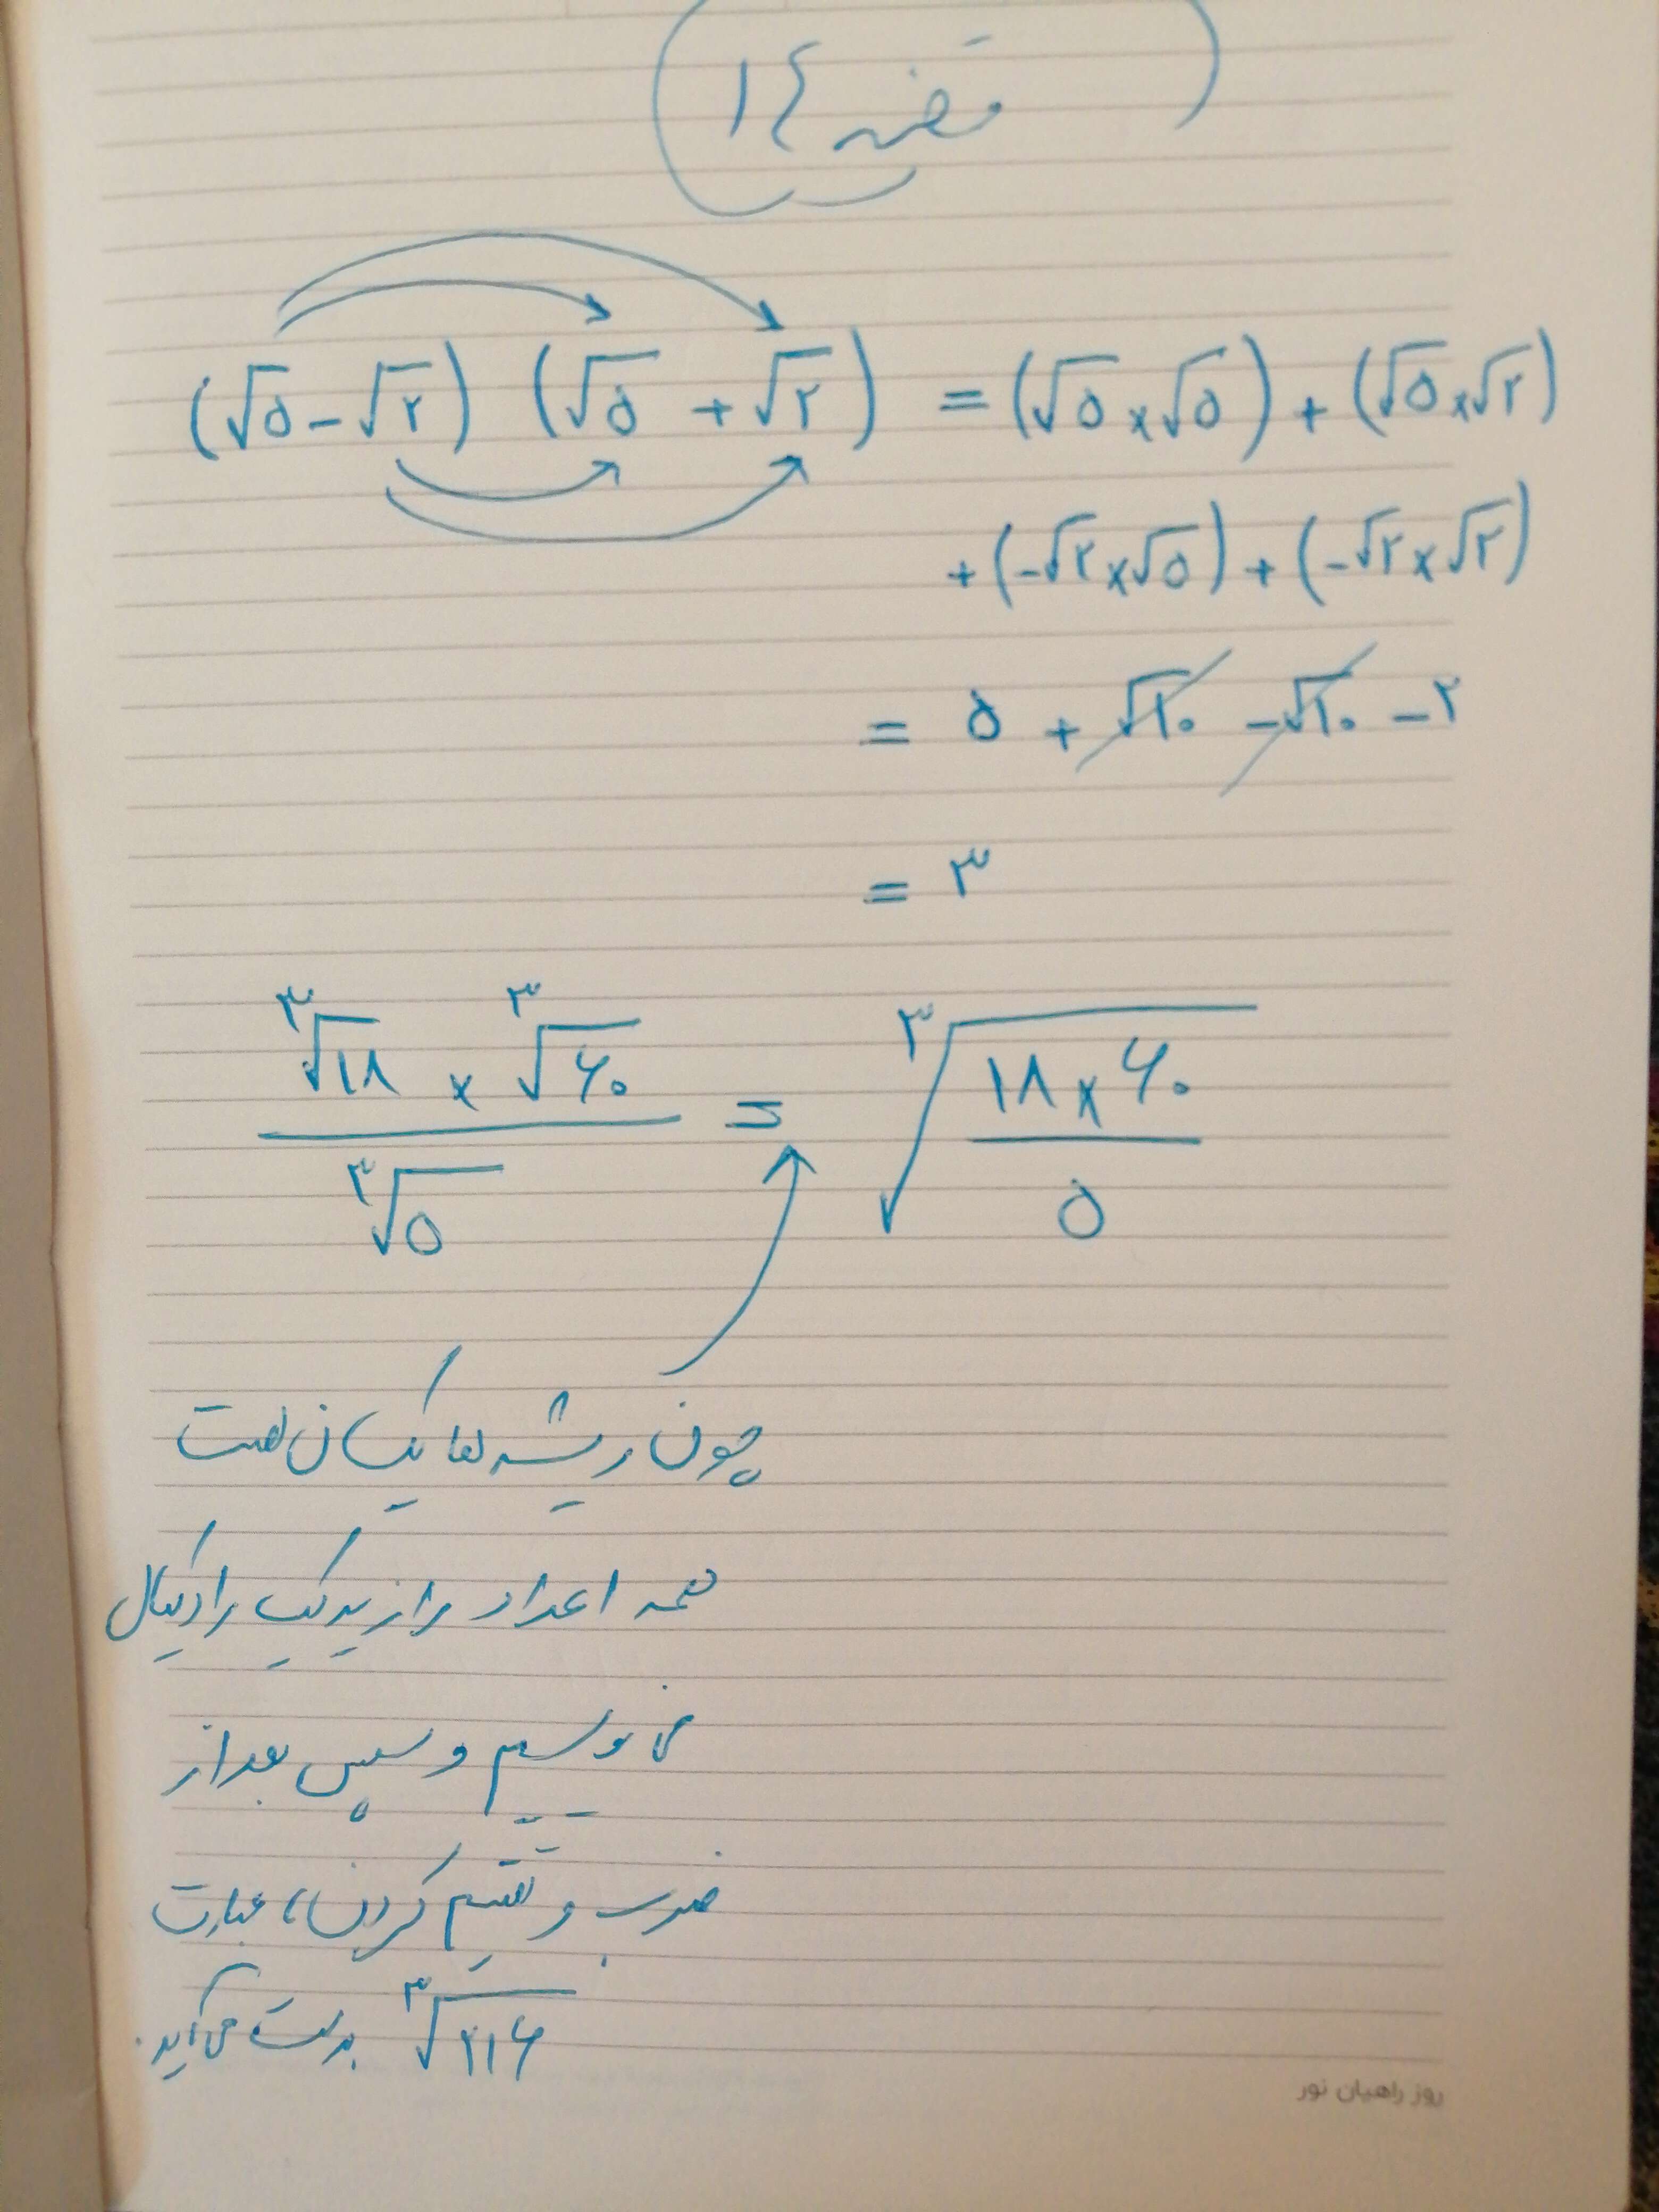 صفحه ۱۴
(√۵ - √۲) (√۵ + √۲) = (√۵ × √۵) + (√۵ × √۲)
+ (-√۲ × √۵) + (-√۲ × √۲)
= ۵ + √۱۰ - √۱۰ - ۲
= ۳
(∛۱۸ × ∛۶۰) / ∛۵ = ∛((۱۸ × ۶۰) / ۵)
چون ریشه ها یکسان هست
همه اعداد را زیر یک رادیکال
می نویسیم و سپس بعد از
ضرب و تقسیم کردن، عبارت
∛۲۱۶ بدست می آید.
روز راهیان نور